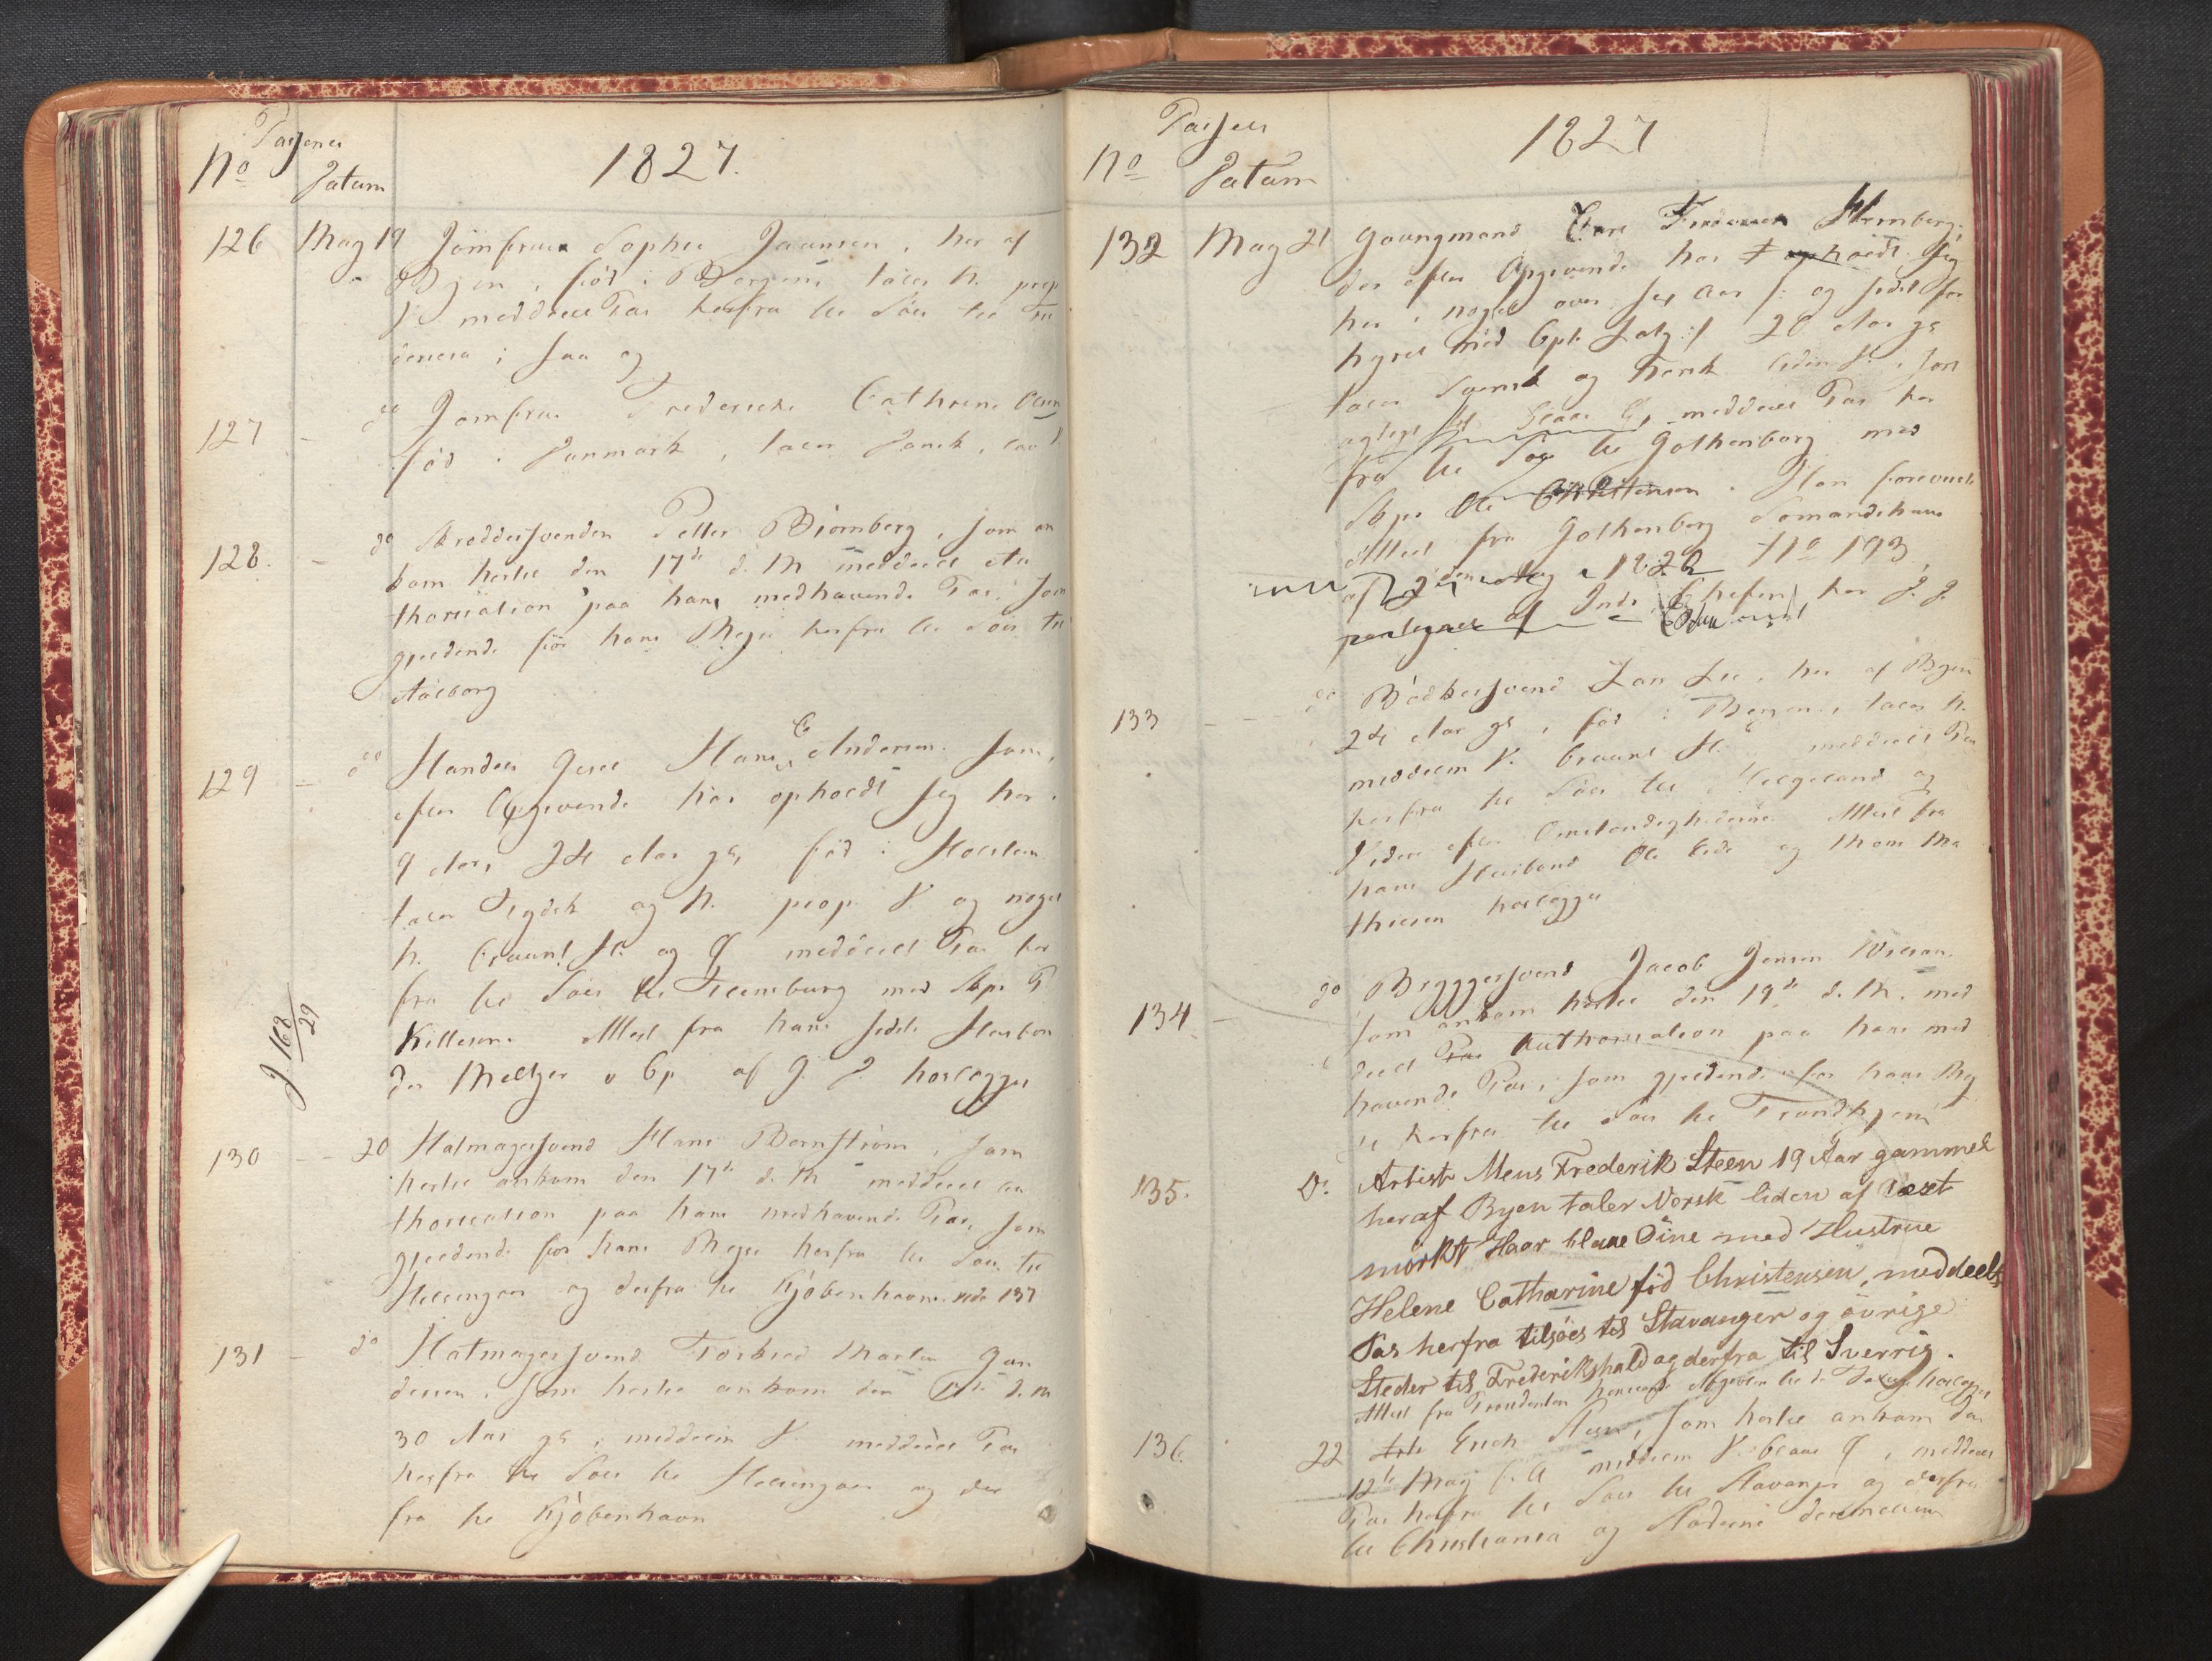 Passenes
No Datum 1827.
126 May 19 Jomfrue Sophie Jaansen, her af
Byen, fød i Bergen, taler N. prop
V. meddeelt Pas herfra til Søes til
i saa og
127 - do Jomfrue Friderecke Cathrine
fød i Danmark, taler Dansk,
128. - do Skrædersvenden Petter Biornberg, som an
kom hertil den 17de d. M. meddeelt Au
thorisation paa hans medhavende Pas, som
gjeldende for hans Rejse herfra til Søes til
Aalborg
129 - do Handels Gesel Hans C Andersen som,
efter Opgivende har opholdt sig her i
9 Aar, 24 Aar gl, fød i Holsten
taler Tydsk og N. prop. V. og noget
N. bruunt H. og meddeelt Pas her
fra til Søes til Flensburg med Skpr P
Killesen. Attest fra hans sidste Huusbon
de Meltzer v Cp af J. J. horlægges
J. 168/29
130 - 20 Hatmagersvend Hans Bernstrøm, som
hertil ankom den 17de d. M. meddeelt au
thorisation paa hans medhavende Pas, som
gjeldende for hans Rejse herfra til Søes til
Helsingøer og derfra til Kjøbenhavn. vide 137
131 - do Hatmagersvend Torkild Martin Gun
dersen, som hertil ankom den d. M
30 Aar gl, middelm V. meddeelt Pas
herfra til Søes til Helsingøer og der
fra til Kjøbenhavn
Passes
No Datum 1827
132 May 21 Gaungmand Hernberg,
der efter Opgivende har opholdt sig
her i noget over sex Aar og sidst for
hyret med Cpt. 20 Aar gl
taler Svensk og Norsk liden
meddeelt Pas her
fra til Søes til Gothenborg med
Skpr Ole Christensen. Han foreviiste
Attest fra Gothenborg Sømandshuus
af 1822 No 193
133 - - do Bødkersvend Jan Lie, her af Byen
24 Aar gl, fød i Bergen, taler N.
middelm V. bruunt H. meddeelt Pas
herfra til Søes til Helgeland og
videre efter Omstændighederne. Attest fra
hans Huusbond Ole Eide og Thom Ma
thiesen horlægges
134 - do Bryggersvend Jacob Jensen Wilson
som ankom hertil den 19de d. M. med
deelt Pas Authorisation paa hans med
havende Pas, som gjeldende for hans Rej
se herfra til Søes til Trondhjem
135. Do Artist Mens Frederik Steen 19 Aar gammel
heraf Byen taler Norsk liden af Væxt
mørkt Haar blaae Øine med Hustrue
Helene Catharine fød Christensen, meddeelt
Pas herfra tilsøes til Stavanger og øvrige
Steder til Frederikshald og derfra til Sverrig.
Attest fra horlægges
136. 22 Erich Steen, som hertil ankom den
12te May middelm V. blaae meddeelt
Pas herfra til Søes til Stavanger og derfra
til Christiania og Stæderne derimellem